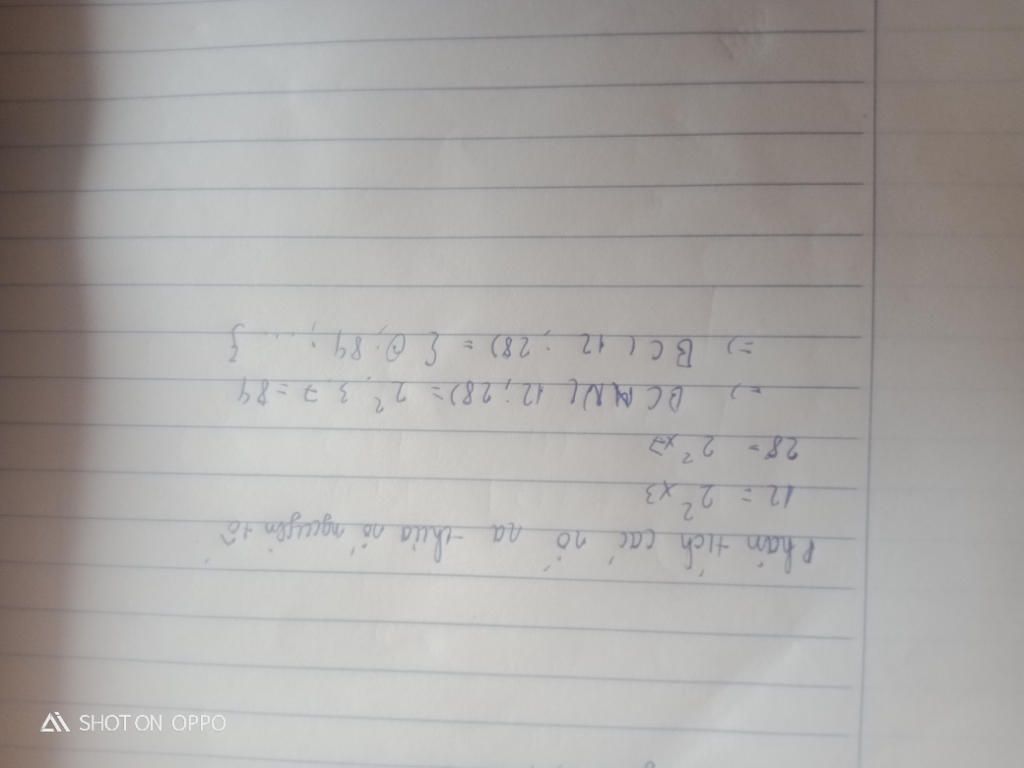 Phân tích các số ra thừa số nguyên tố
12 = 2² x3
28 = 2² x7
=) BCNN( 12; 28) = 2². 3. 7 = 84
=) BC( 12 ; 28) = { 0; 84; ... }
SHOT ON OPPO